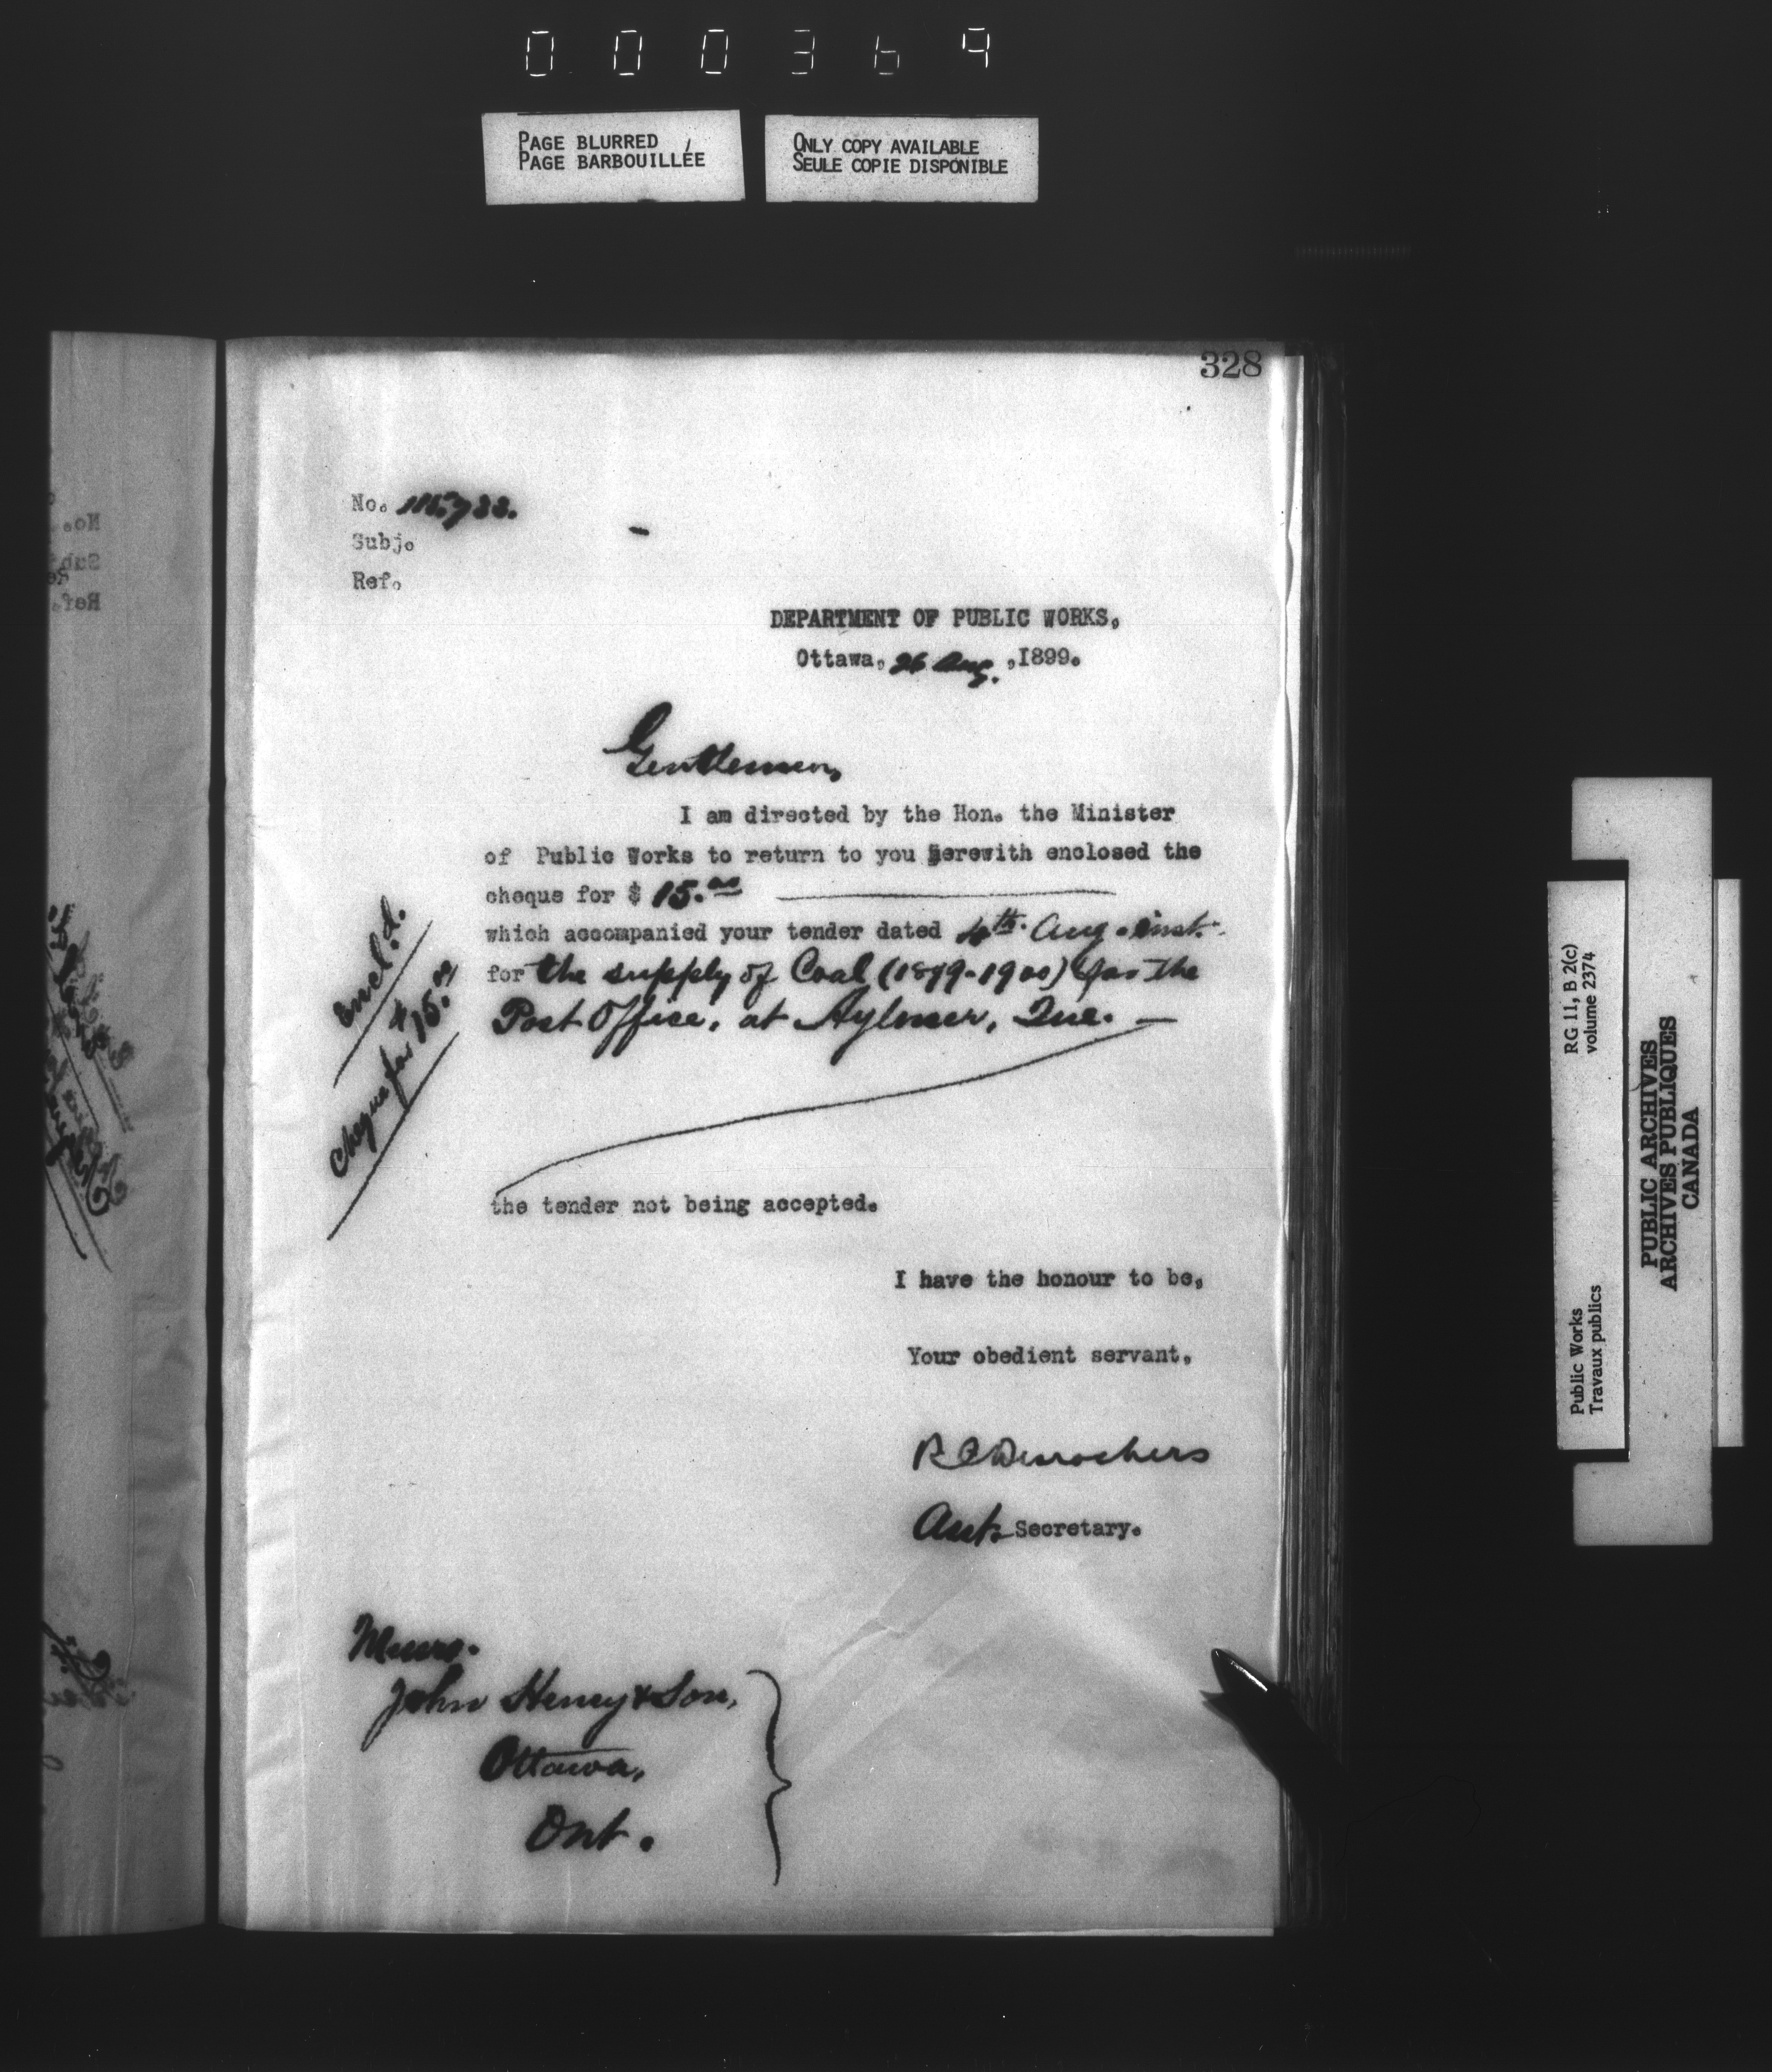 000369
PAGE BLURRED
PAGE BARBOUILLÉE
ONLY COPY AVAILABLE
SEULE COPIE DISPONIBLE
328
No.
Subj.
Ref.
DEPARTMENT OF PUBLIC WORKS,
Ottawa, 26 Aug. ,1899.
Gentlemen,
I am directed by the Hon. the Minister
of Public Works to return to you herewith enclosed the
cheque for $ 15.00
which accompanied your tender dated 4th. Aug. inst.
for the supply of Coal (1899-1900) for the
Post Office, at Aylmer, Que. —
the tender not being accepted.
Encl.d.
Cheque for $15.00
I have the honour to be,
Your obedient servant,
R C Desrochers
Asst. Secretary.
Messrs.
John Henry & Son,
Ottawa,
Ont.
RG 11, B 2(c)
volume 2374
Public Works
Travaux publics
PUBLIC ARCHIVES
ARCHIVES PUBLIQUES
CANADA